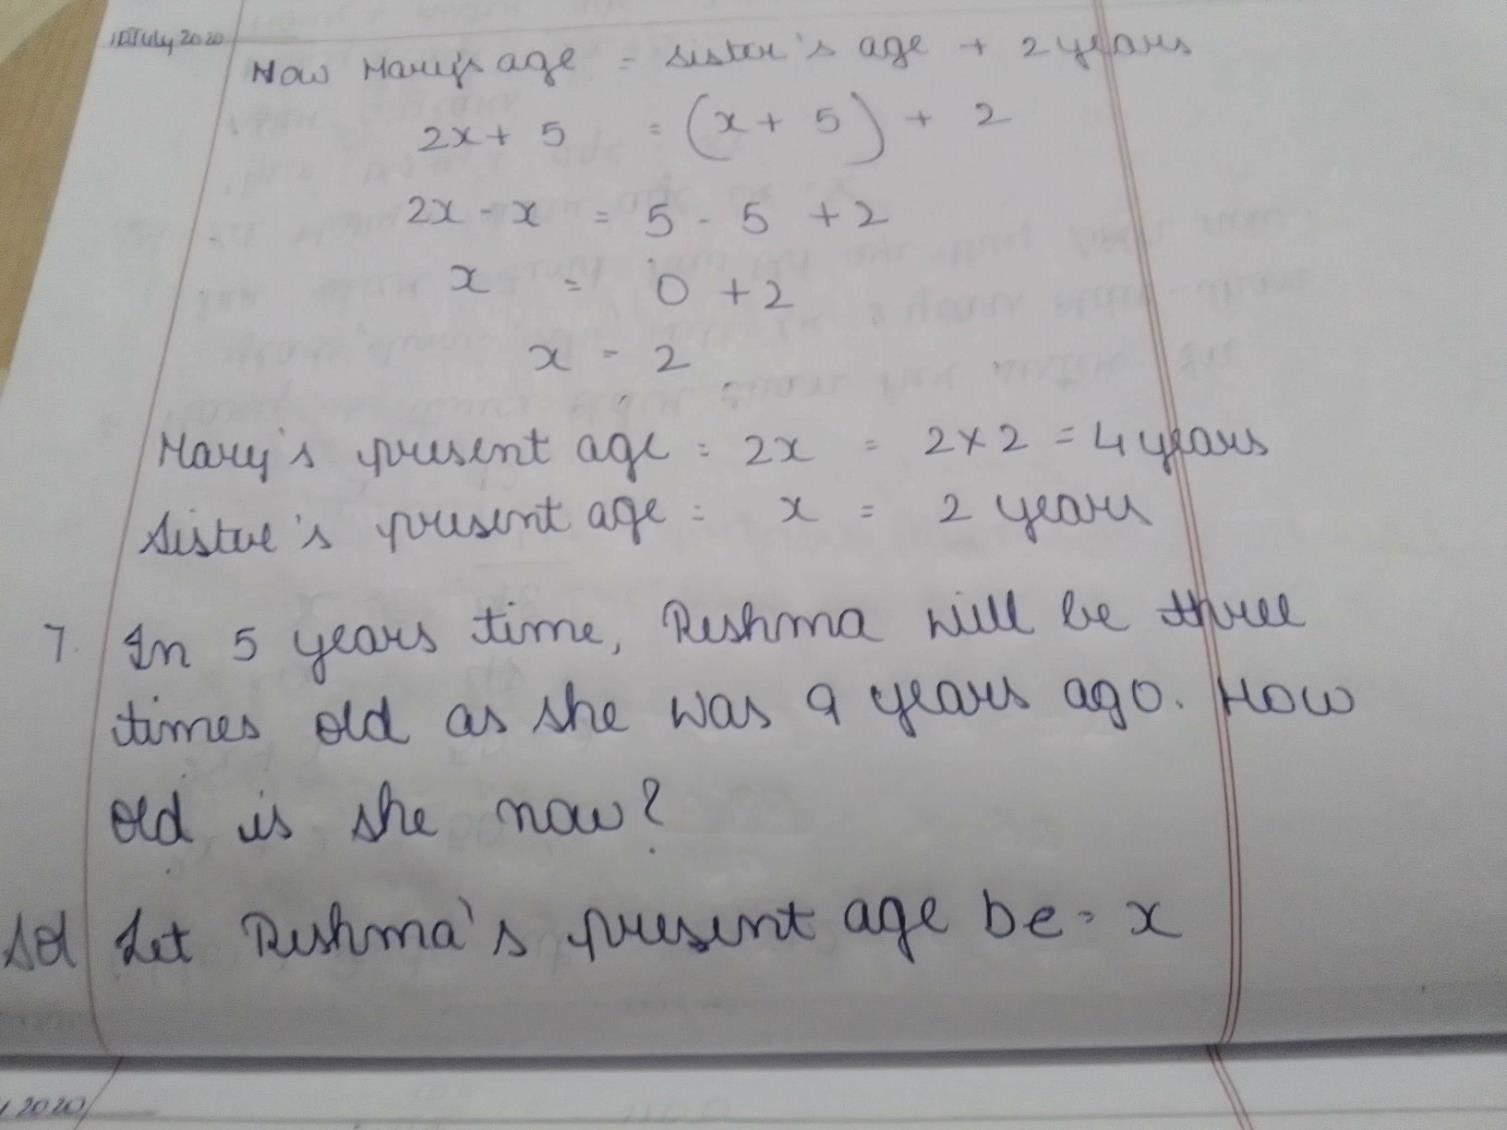 July 2020
Now Mary's age = sister's age + 2 years
2x + 5 = (x + 5) + 2
2x - x = 5 - 5 + 2
x = 0 + 2
x = 2
Mary's present age = 2x = 2 x 2 = 4 years
Sister's present age = x = 2 years
7. In 5 years time, Reshma will be three
times old as she was 9 years ago. How
old is she now?
Sol Let Reshma's present age be = x
2020